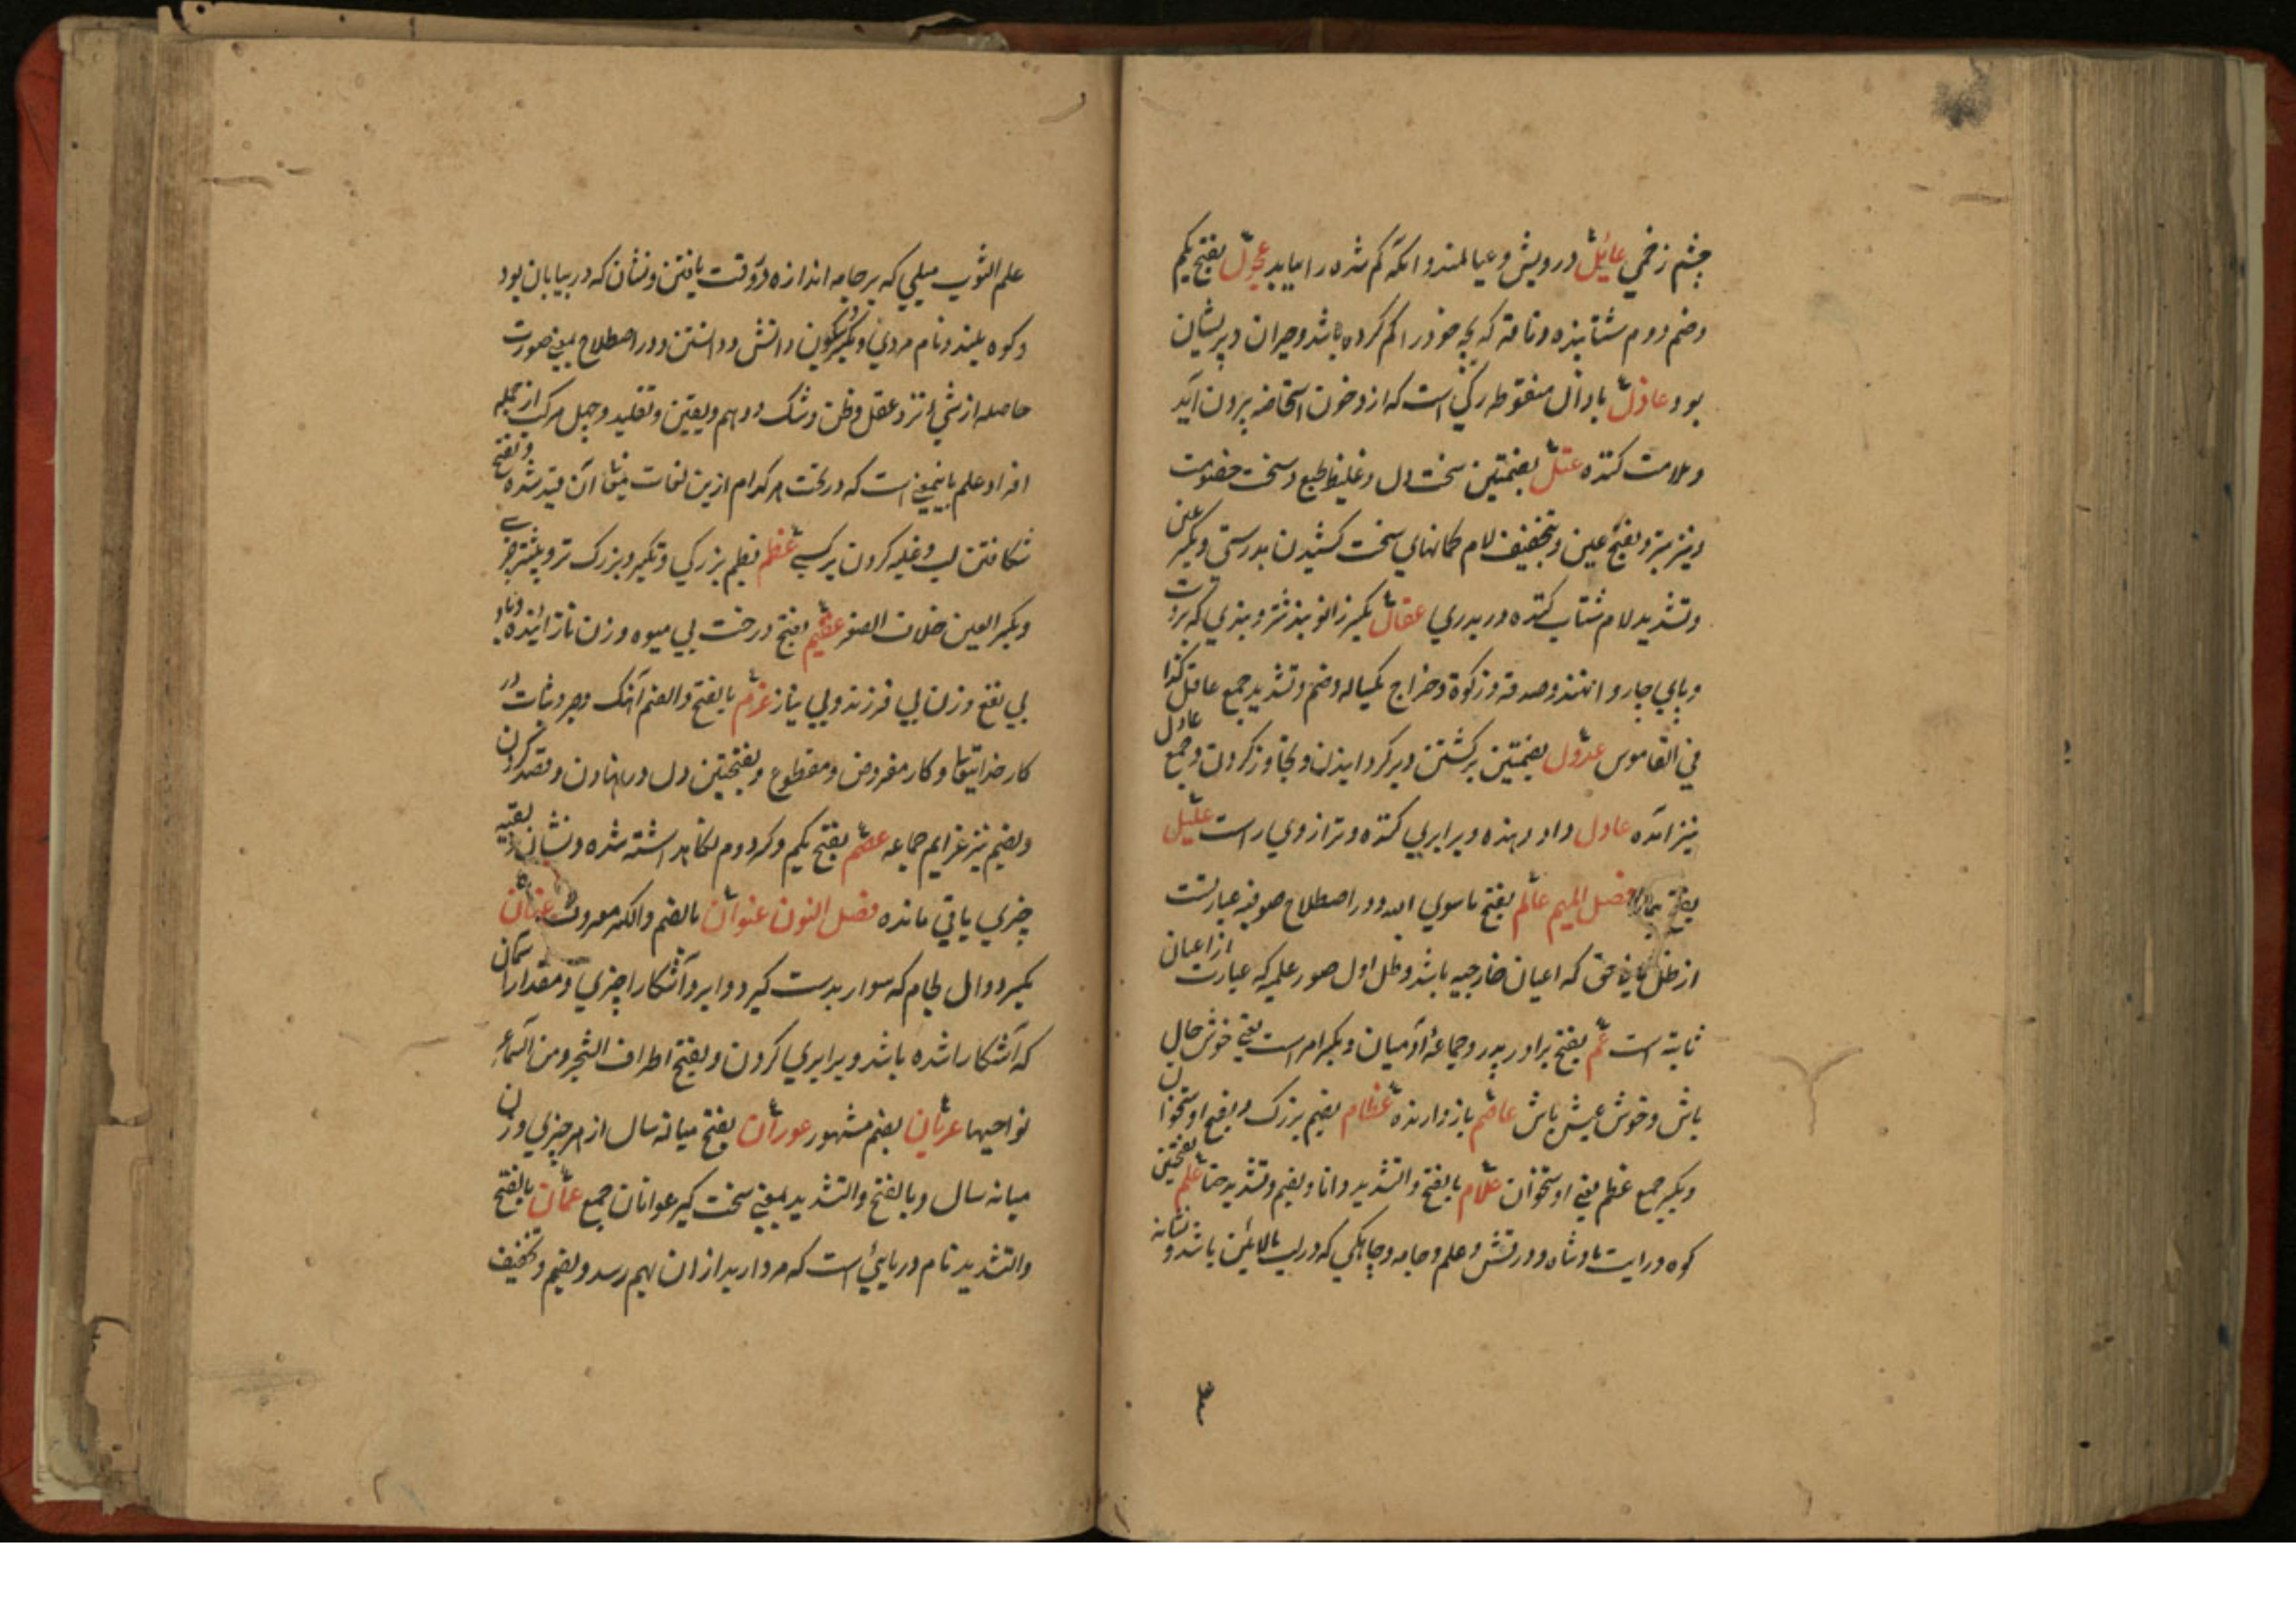 چشم زخمی عائل درویش و عیالمند و آنکه گم شده را بیابد عجول بفتح یکم
وضم دوم شتابنده و ناقه که بچه خود را گم کرده باشد و حیران و پریشان
بود عاذل با ذال منقوطه رگی است که ازو خون استحاضه بیرون آید
و ملامت کننده عتل بضمتین سخت دل و غلیظ طبع و سخت خصومت
و نیز و بفتح عین و بتخفیف لام کمانهای سخت کشیدن بدرستی و بکسر عین
و تشدید لام شتاب کننده در بدی عقال بکسر زانو بند شتر و بندی که بر دست
و پای چاروا نهند و صدقه و زکوة و خراج یکساله و ضم و تشدید جمع عاقل کذا
فی القاموس عدول بضمتین برگشتن و برگردانیدن و تجاوز کردن و جمع عادل
نیز آمده عادل داد دهنده و برابری کننده و ترازوی راست علیل
بفتح بیمار فصل المیم عالم بفتح ماسوی الله و در اصطلاح صوفیه عبارتست
از ظل ثانی حق که اعیان خارجیه باشد و ظل اول صور علمیه که عبارت از اعیان
ثابته است عم بفتح برادر پدر و جماعهٔ آدمیان و بکسر امر است یعنی خوش حال
باش و خوش عیش باش عاصم باز دارنده عظام بضم بزرگ و بفتح اوستخوان
و بکسر جمع عظم یعنی اوستخوان علام بالفتح و التشدید دانا و بضم و تشدید حنا علم بفتحتین
کوه و رایت بادشاه و درفش و علم و جامه و چابکی که در لب بالائین باشد و نشانه
علم الثوب میلی که بر جامه اندازه در وقت بافتن و نشان که در بیابان بود
و کوه بلند و نام مردی و بکسر و سکون دانش و دانستن و در اصطلاح بمعنی صورت
حاصله از شیٔ نزد عقل و ظن و شک و وهم و یقین و تقلید و جهل مرکب از جمله
افراد علم باینمعنی است که در تحت هر کدام ازین لغات آن قید شده و بفتح
شکافتن لب و غلبه کردن بر کسی عظم بضم بزرگی و تکبر و بزرگ تر و بیشتر چیزی
و بکسر العین خلاف الصغر عقیم بفتح درخت بی میوه و زن نازائنده و باد
بی نفع و زن بی فرزند و بی نیاز عزم بالفتح و الضم آهنگ و جد و ثبات در
کار خدایتعالی و کار مفروض و مقطوع و بفتحتین دل در نهادن و قصد کردن
و بضم نیز عزایم جماعه عصم بفتح یکم و کسر دوم نگاه داشته شده و نشان بقیه
چیزی باقی مانده فصل النون عنوان بالضم والکسر معروف عنان
بکسر دوال لجام که سوار بدست گیرد و ابر و آشکارا چیزی و مقدار آسمان
که آشکارا شده باشد و برابری کردن و بفتح اطراف الشجر و من السماء
نواحیها عریان بضم مشهور عوران بفتح میانه سال از هر چیزی و زن
میانه سال و بالفتح والتشدید بمعنی سخت گیر عوانان جمع عمان بالفتح
والتشدید نام دریایی است که مروارید از ان بهم رسد و بضم و تخفیف